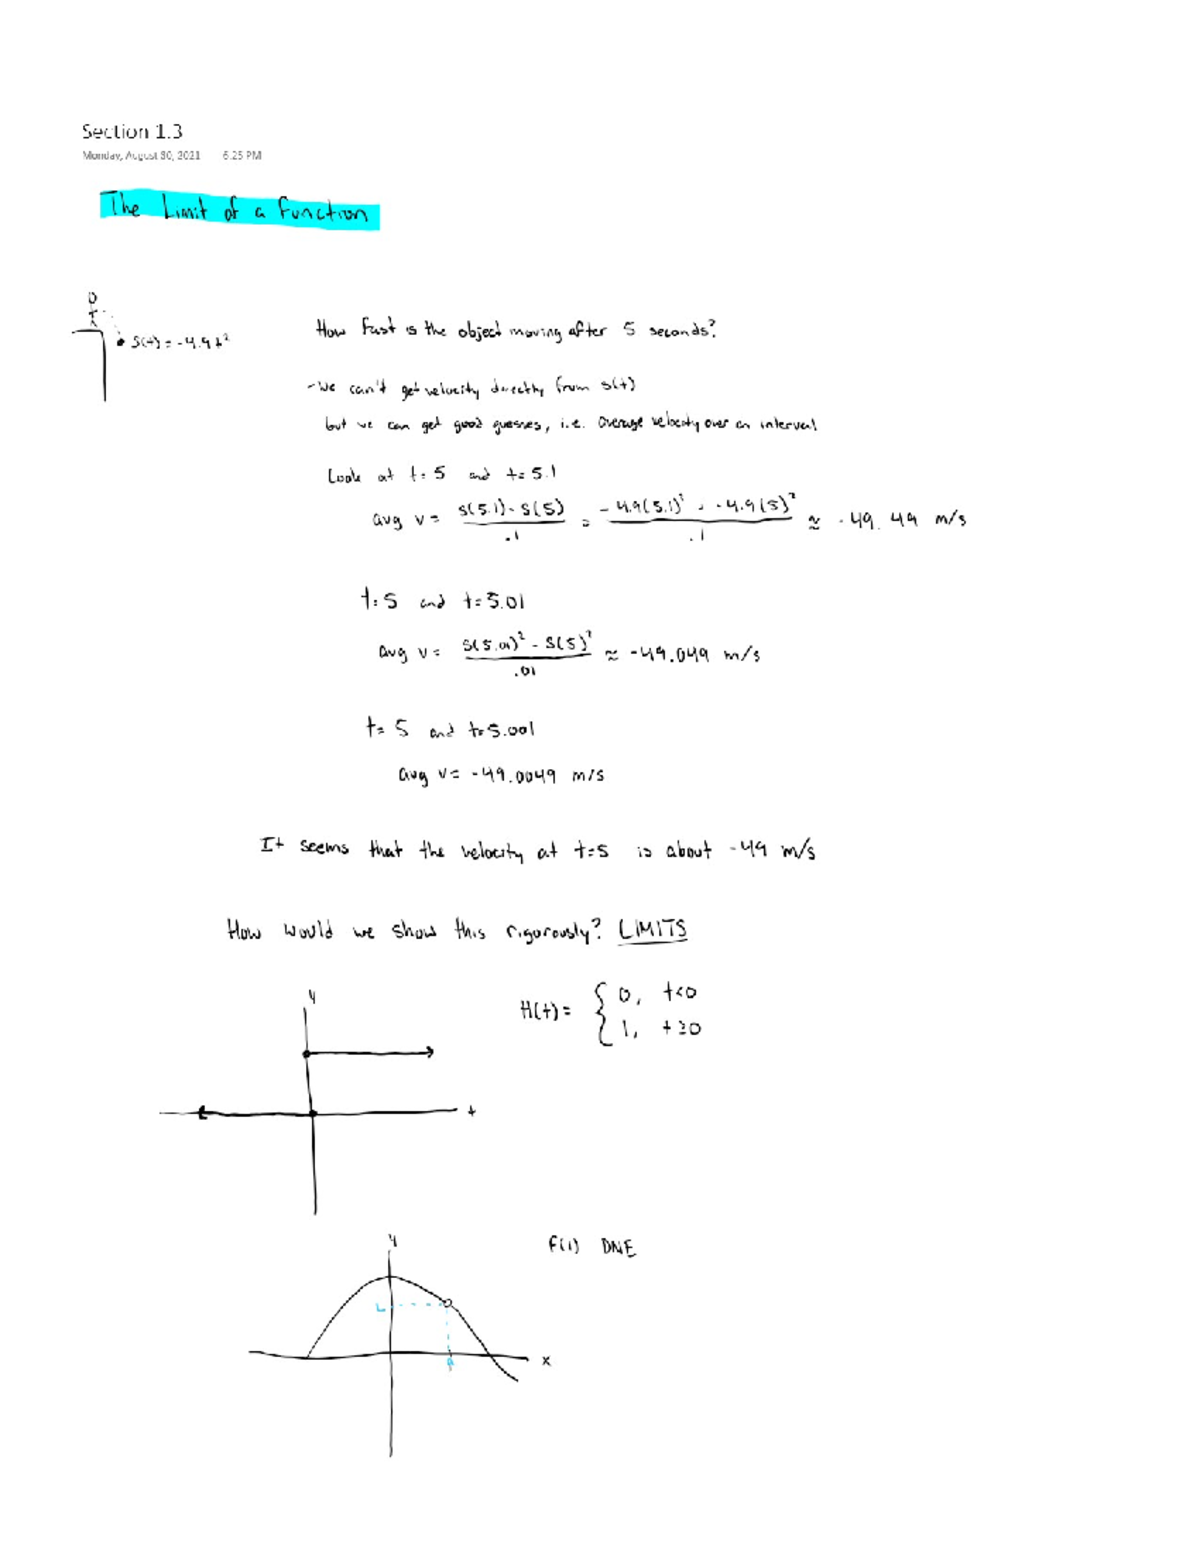 Section 1.3
Monday, August 30, 2021 6:25 PM
The Limit of a function
S(t) = -4.9t²
How fast is the object moving after 5 seconds?
- We can't get velocity directly from s(t)
but we can get good guesses, i.e. average velocity over an interval
Look at t=5 and t=5.1
avg v = s(5.1) - s(5) / .1 = -4.9(5.1)² - -4.9(5)² / .1 ≈ -49.49 m/s
t=5 and t=5.01
avg v = s(5.01)² - s(5)² / .01 ≈ -49.049 m/s
t=5 and t=5.001
avg v = -49.0049 m/s
It seems that the velocity at t=5 is about -49 m/s
How would we show this rigorously? LIMITS
y
H(t) = { 0, t<0
1, t≥0
t
y
f(1) DNE
L
a
x